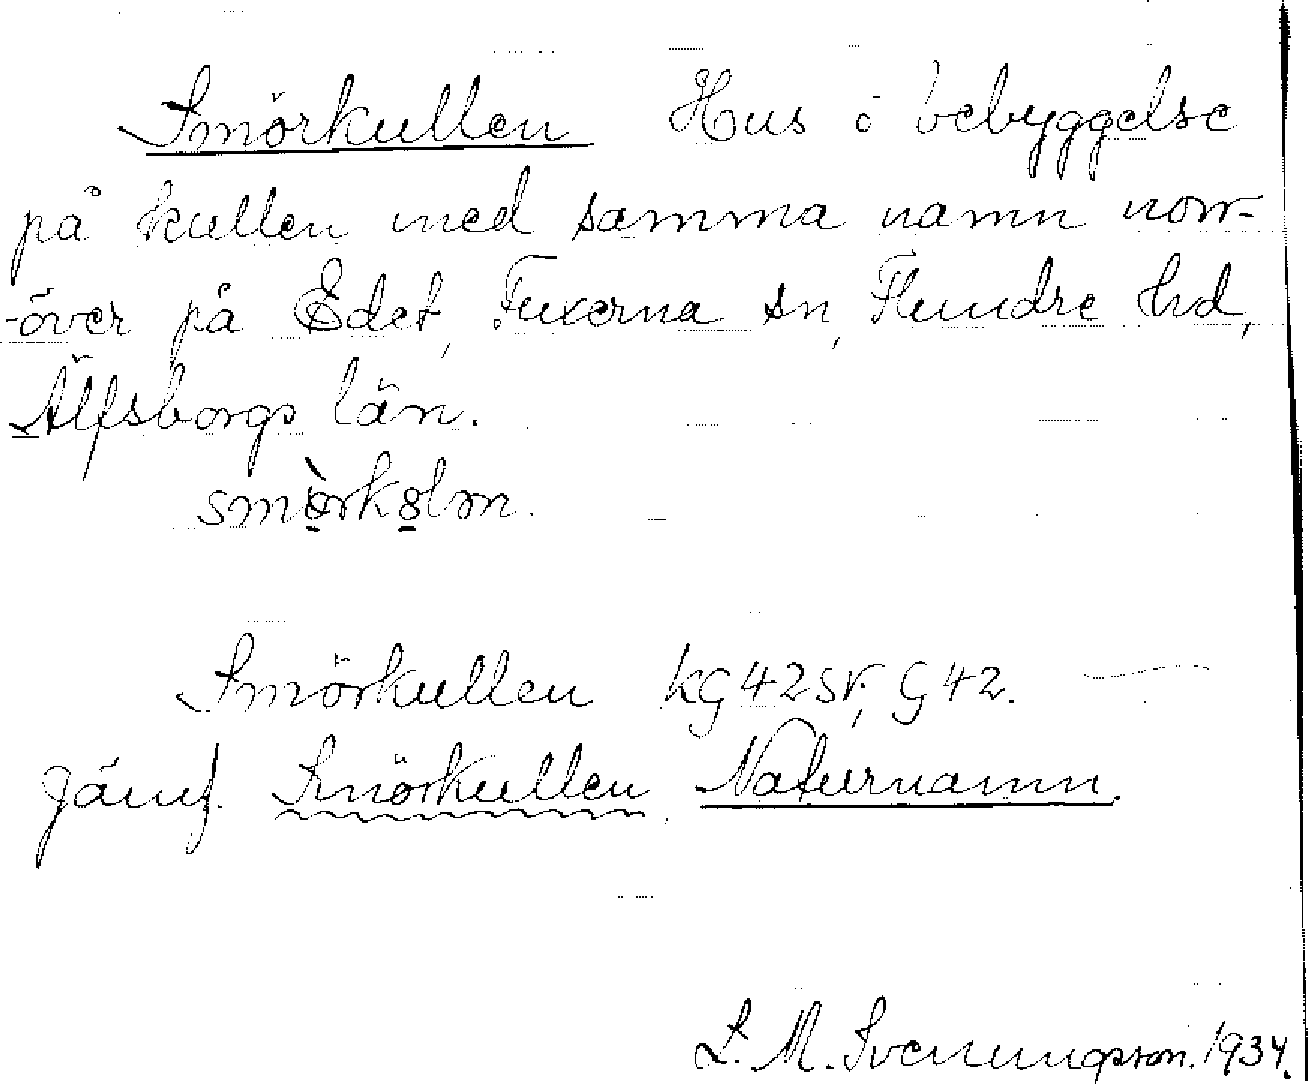 Smörkullen Hus i bebyggelse
på kullen med samma namn norr-
-över på Edet, Fuxerna sn, Flundre hd,
Älfsborgs län.
smörkolm.
Smörkullen kG42sv, G42.
Jämf. Smörkullen. Naturnamn.
S. M. Svenungsson. 1934.